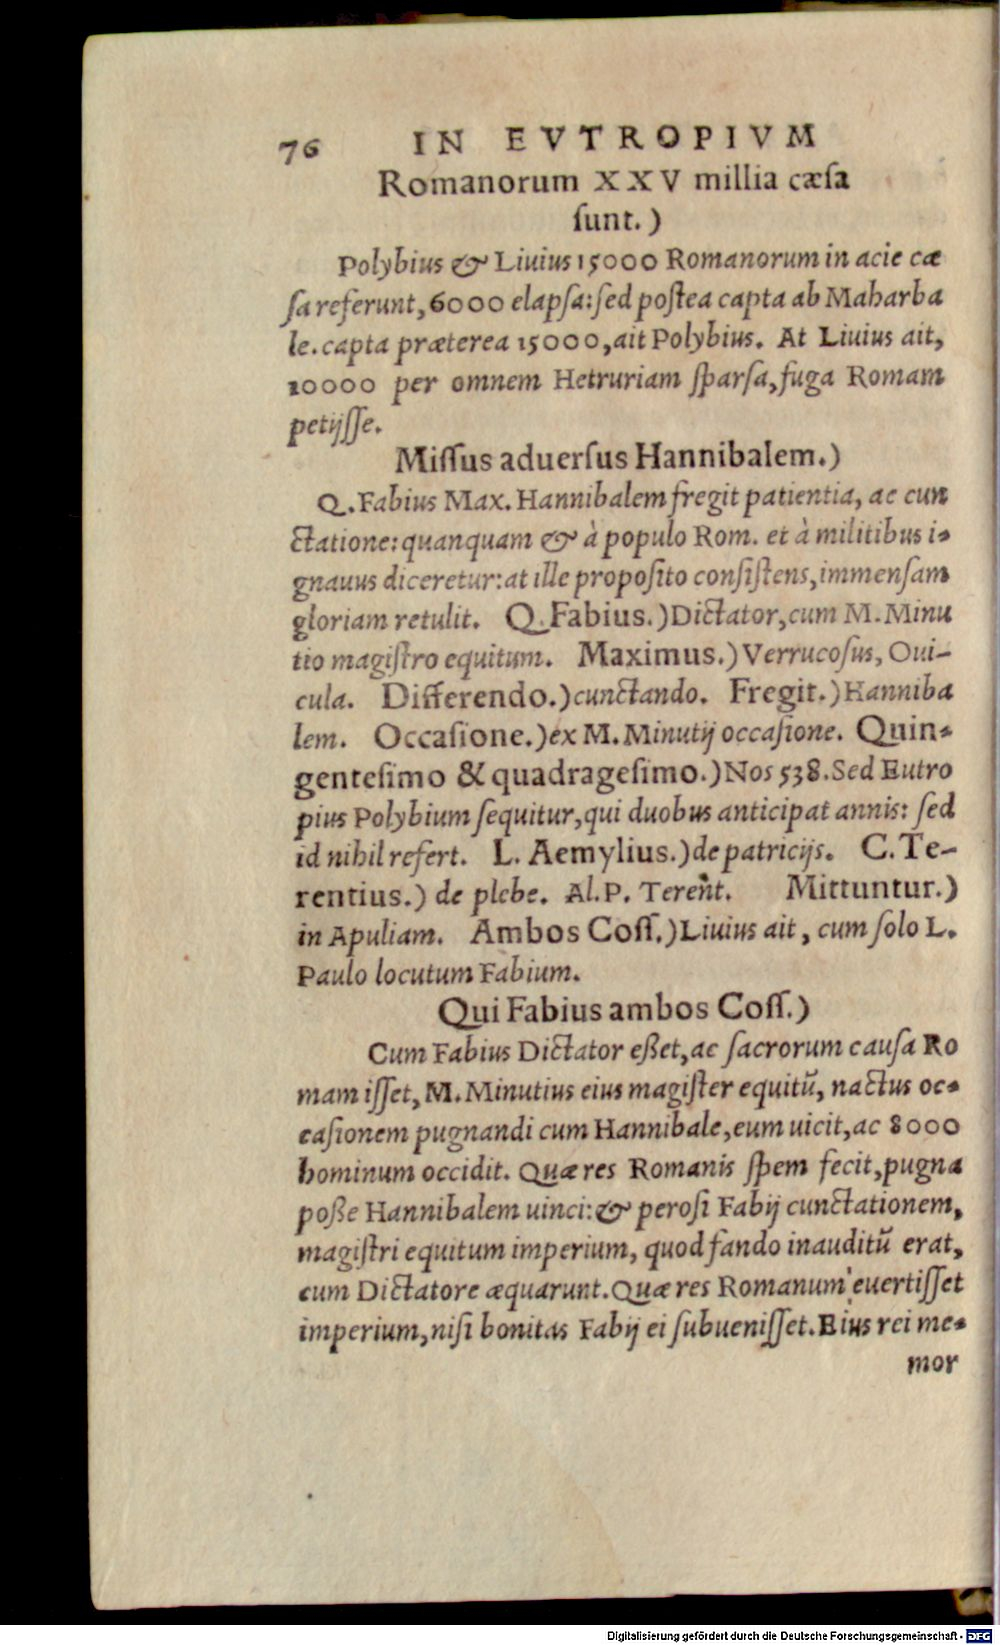 76 IN EVTROPIVM
Romanorum XXV millia cæſa
ſunt.)
Polybius & Liuius 15000 Romanorum in acie cæ
ſa referunt, 6000 elapſa: ſed poſtea capta ab Maharba
le. capta præterea 15000, ait Polybius. At Liuius ait,
10000 per omnem Hetruriam ſparſa, fuga Romam
petijſſe.
Miſſus aduerſus Hannibalem.)
Q. Fabius Max. Hannibalem fregit patientia, ac cun
ctatione: quanquam & à populo Rom. et à militibus i-
gnauus diceretur: at ille propoſito conſiſtens, immenſam
gloriam retulit. Q. Fabius.) Dictator, cum M. Minu
tio magiſtro equitum. Maximus.) Verrucoſus, Oui-
cula. Differendo.) cunctando. Fregit.) Hanniba
lem. Occaſione.) ex M. Minutij occaſione. Quin-
genteſimo & quadrageſimo.) Nos 538. Sed Eutro
pius Polybium ſequitur, qui duobus anticipat annis: ſed
id nihil refert. L. Aemylius.) de patricijs. C. Te-
rentius.) de plebe. Al. P. Terent. Mittuntur.)
in Apuliam. Ambos Coſſ.) Liuius ait, cum ſolo L.
Paulo locutum Fabium.
Qui Fabius ambos Coſſ.)
Cum Fabius Dictator eßet, ac ſacrorum cauſa Ro
mam iſſet, M. Minutius eius magiſter equitū, nactus oc-
caſionem pugnandi cum Hannibale, eum uicit, ac 8000
hominum occidit. Quæ res Romanis ſpem fecit, pugna
poße Hannibalem uinci: & peroſi Fabij cunctationem,
magiſtri equitum imperium, quod fando inauditū erat,
cum Dictatore æquarunt. Quæ res Romanum euertiſſet
imperium, niſi bonitas Fabij ei ſubueniſſet. Eius rei me-
mor
Digitalisierung gefördert durch die Deutsche Forschungsgemeinschaft - DFG